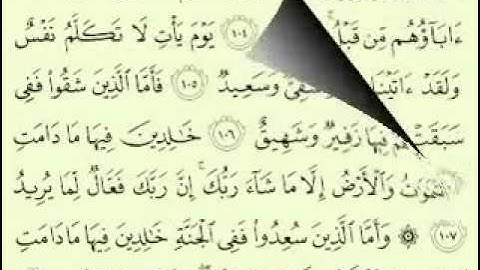 ءَابَآؤُهُم مِّن قَبْلُ ۚ ١٠٤ يَوْمَ يَأْتِ لَا تَكَلَّمُ نَفْسٌ
وَلَقَدْ ءَاتَيْنَا وَسَعِيدٌ ١٠٥ فَأَمَّا ٱلَّذِينَ شَقُوا۟ فَفِى
سَبَقَتْ فِيهَا زَفِيرٌ وَشَهِيقٌ ١٠٦ خَٰلِدِينَ فِيهَا مَا دَامَتِ
وَٱلْأَرْضُ إِلَّا مَا شَآءَ رَبُّكَ ۚ إِنَّ رَبَّكَ فَعَّالٌ لِّمَا يُرِيدُ
١٠٧ ۞ وَأَمَّا ٱلَّذِينَ سُعِدُوا۟ فَفِى ٱلْجَنَّةِ خَٰلِدِينَ فِيهَا مَا دَامَتِ